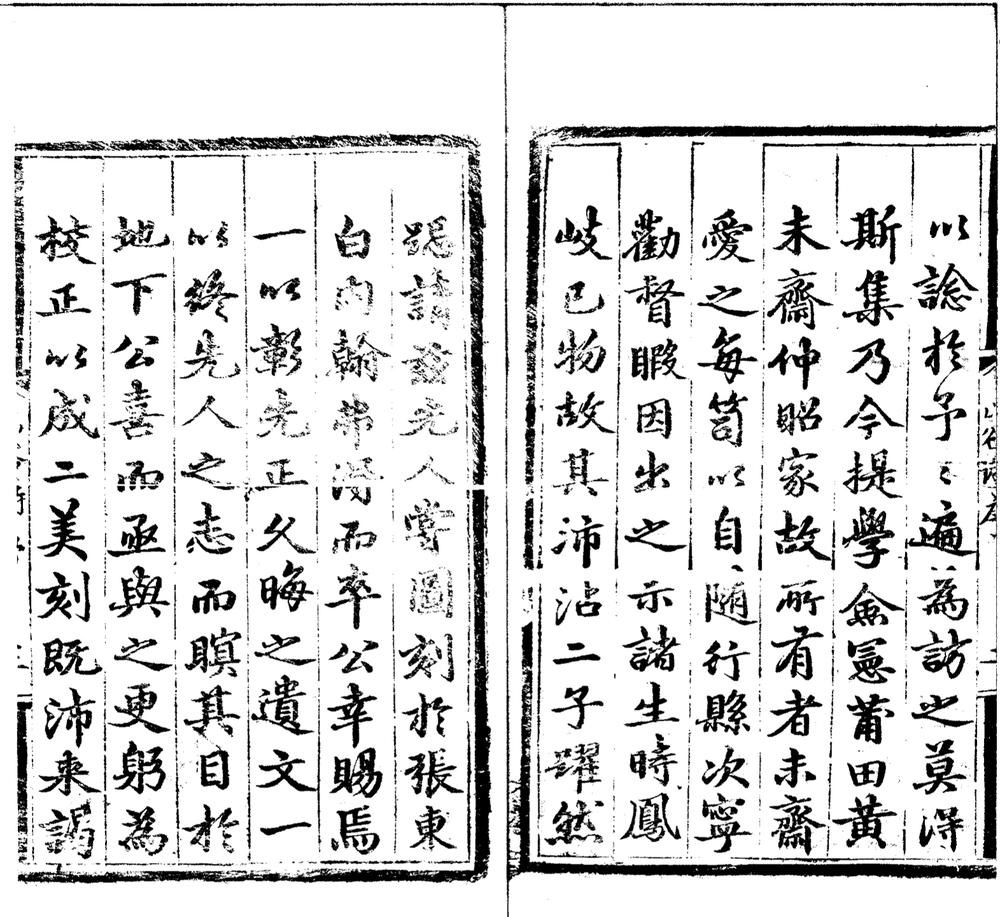 山谷詩序
二
以諗於予〻遍為訪之莫得
斯集乃今提學僉憲莆田黃
未齋仲昭家故所有者未齋
愛之每笥以自隨行縣次寧
勸督暇因出之示諸生時鳳
岐已物故其沛沾二子躍然
跽請茲先人嘗圖刻於張東
白內翰弗得而卒公幸賜焉
一以彰先正久晦之遺文一
以終先人之志而瞑其目於
地下公喜而亟與之更躬為
校正以成二美刻既沛来謁